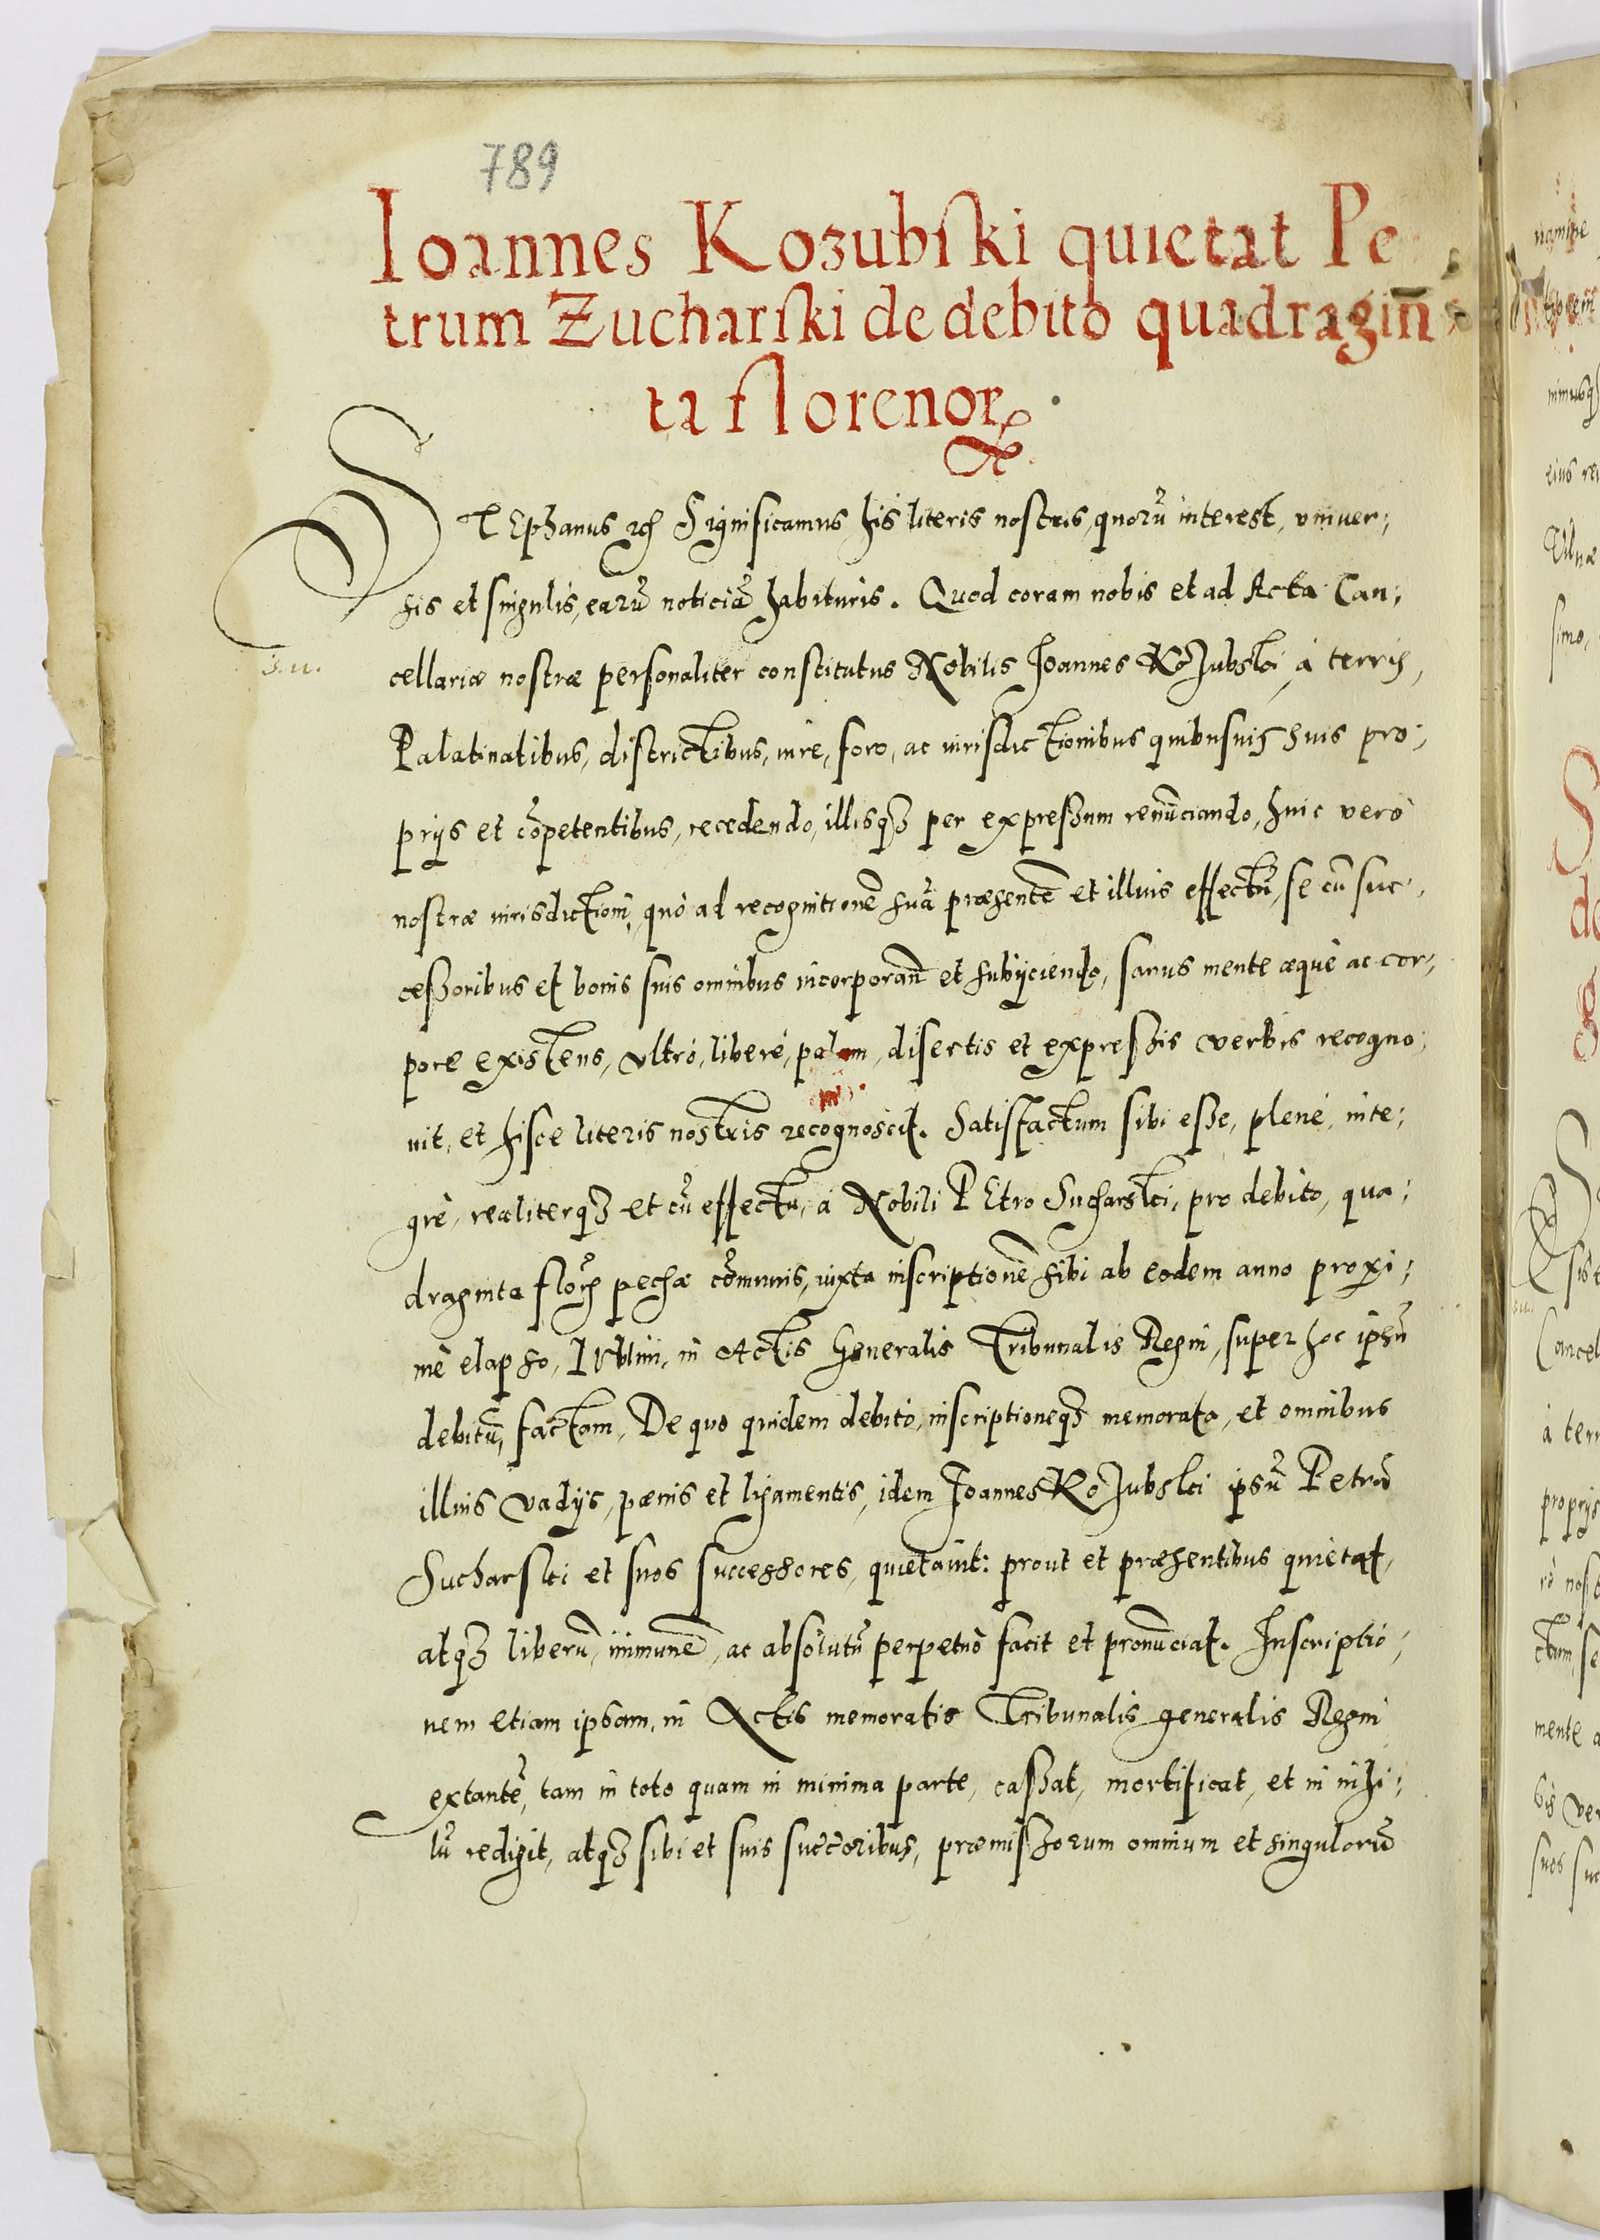 789
Ioannes Kozubski quietat Pe
trum Zucharski de debito quadragin̄
ta florenorꝝ.
STEphanus rc̄ Significamus his literis nostris, quorū interest, vniuer;
sis et singulis, earū noticiā habituris. Quod coram nobis et ad Acta Can;
cellariæ nostræ personaliter constitutus Nobilis Joannes Kozubski, à terris,
Palatinatibus, districtibus, iure, foro, ac iurisdictionibus quibusuis suis pro;
prijs et cōpetentibus, recedendo, illisqʒ per expressum renūciando, huic verò
nostræ iurisdictioni, quò ad recognitionē suā præsentē et illius effectū, se cū suc;
cessoribus et bonis suis omnibus incorporan̄ et subijciendo, sanus mente æquè ac cor;
pore existens, vltrò, liberè, palam, disertis et expressis verbis recogno;
uit, et hisce literis nostris recognoscit. Satisfactum sibi esse, plenè, inte;
grè, realiterqʒ et cū effectu, à Nobili PEtro Sucharski, pro debito, qua;
draginta flor̄ pec̄hæ cōmunis, iuxta inscriptionē sibi ab eodem anno proxi;
mè elapso, Lublini, in Actis Generalis Tribunalis Regni, super hoc ipsū
debitū, factam, De quo quidem debito, inscriptioneqʒ memorata, et omnibus
illius vadijs, pœnis et ligamentis, idem Joannes Kozubski ipsū Petrū
Sucharski et suos successores, quietauit: prout et præsentibus quietat,
atqʒ liberū, immunē, ac absolutū perpetuò facit et pronūciat. Inscriptio;
nem etiam ipsam, in Actis memoratis Tribunalis generalis Regni
extantē, tam in toto quam in minima parte, cassat, mortificat, et in nihi;
lū redigit, atqʒ sibi et suis succ̄oribus, præmissorum omnium et singulorū